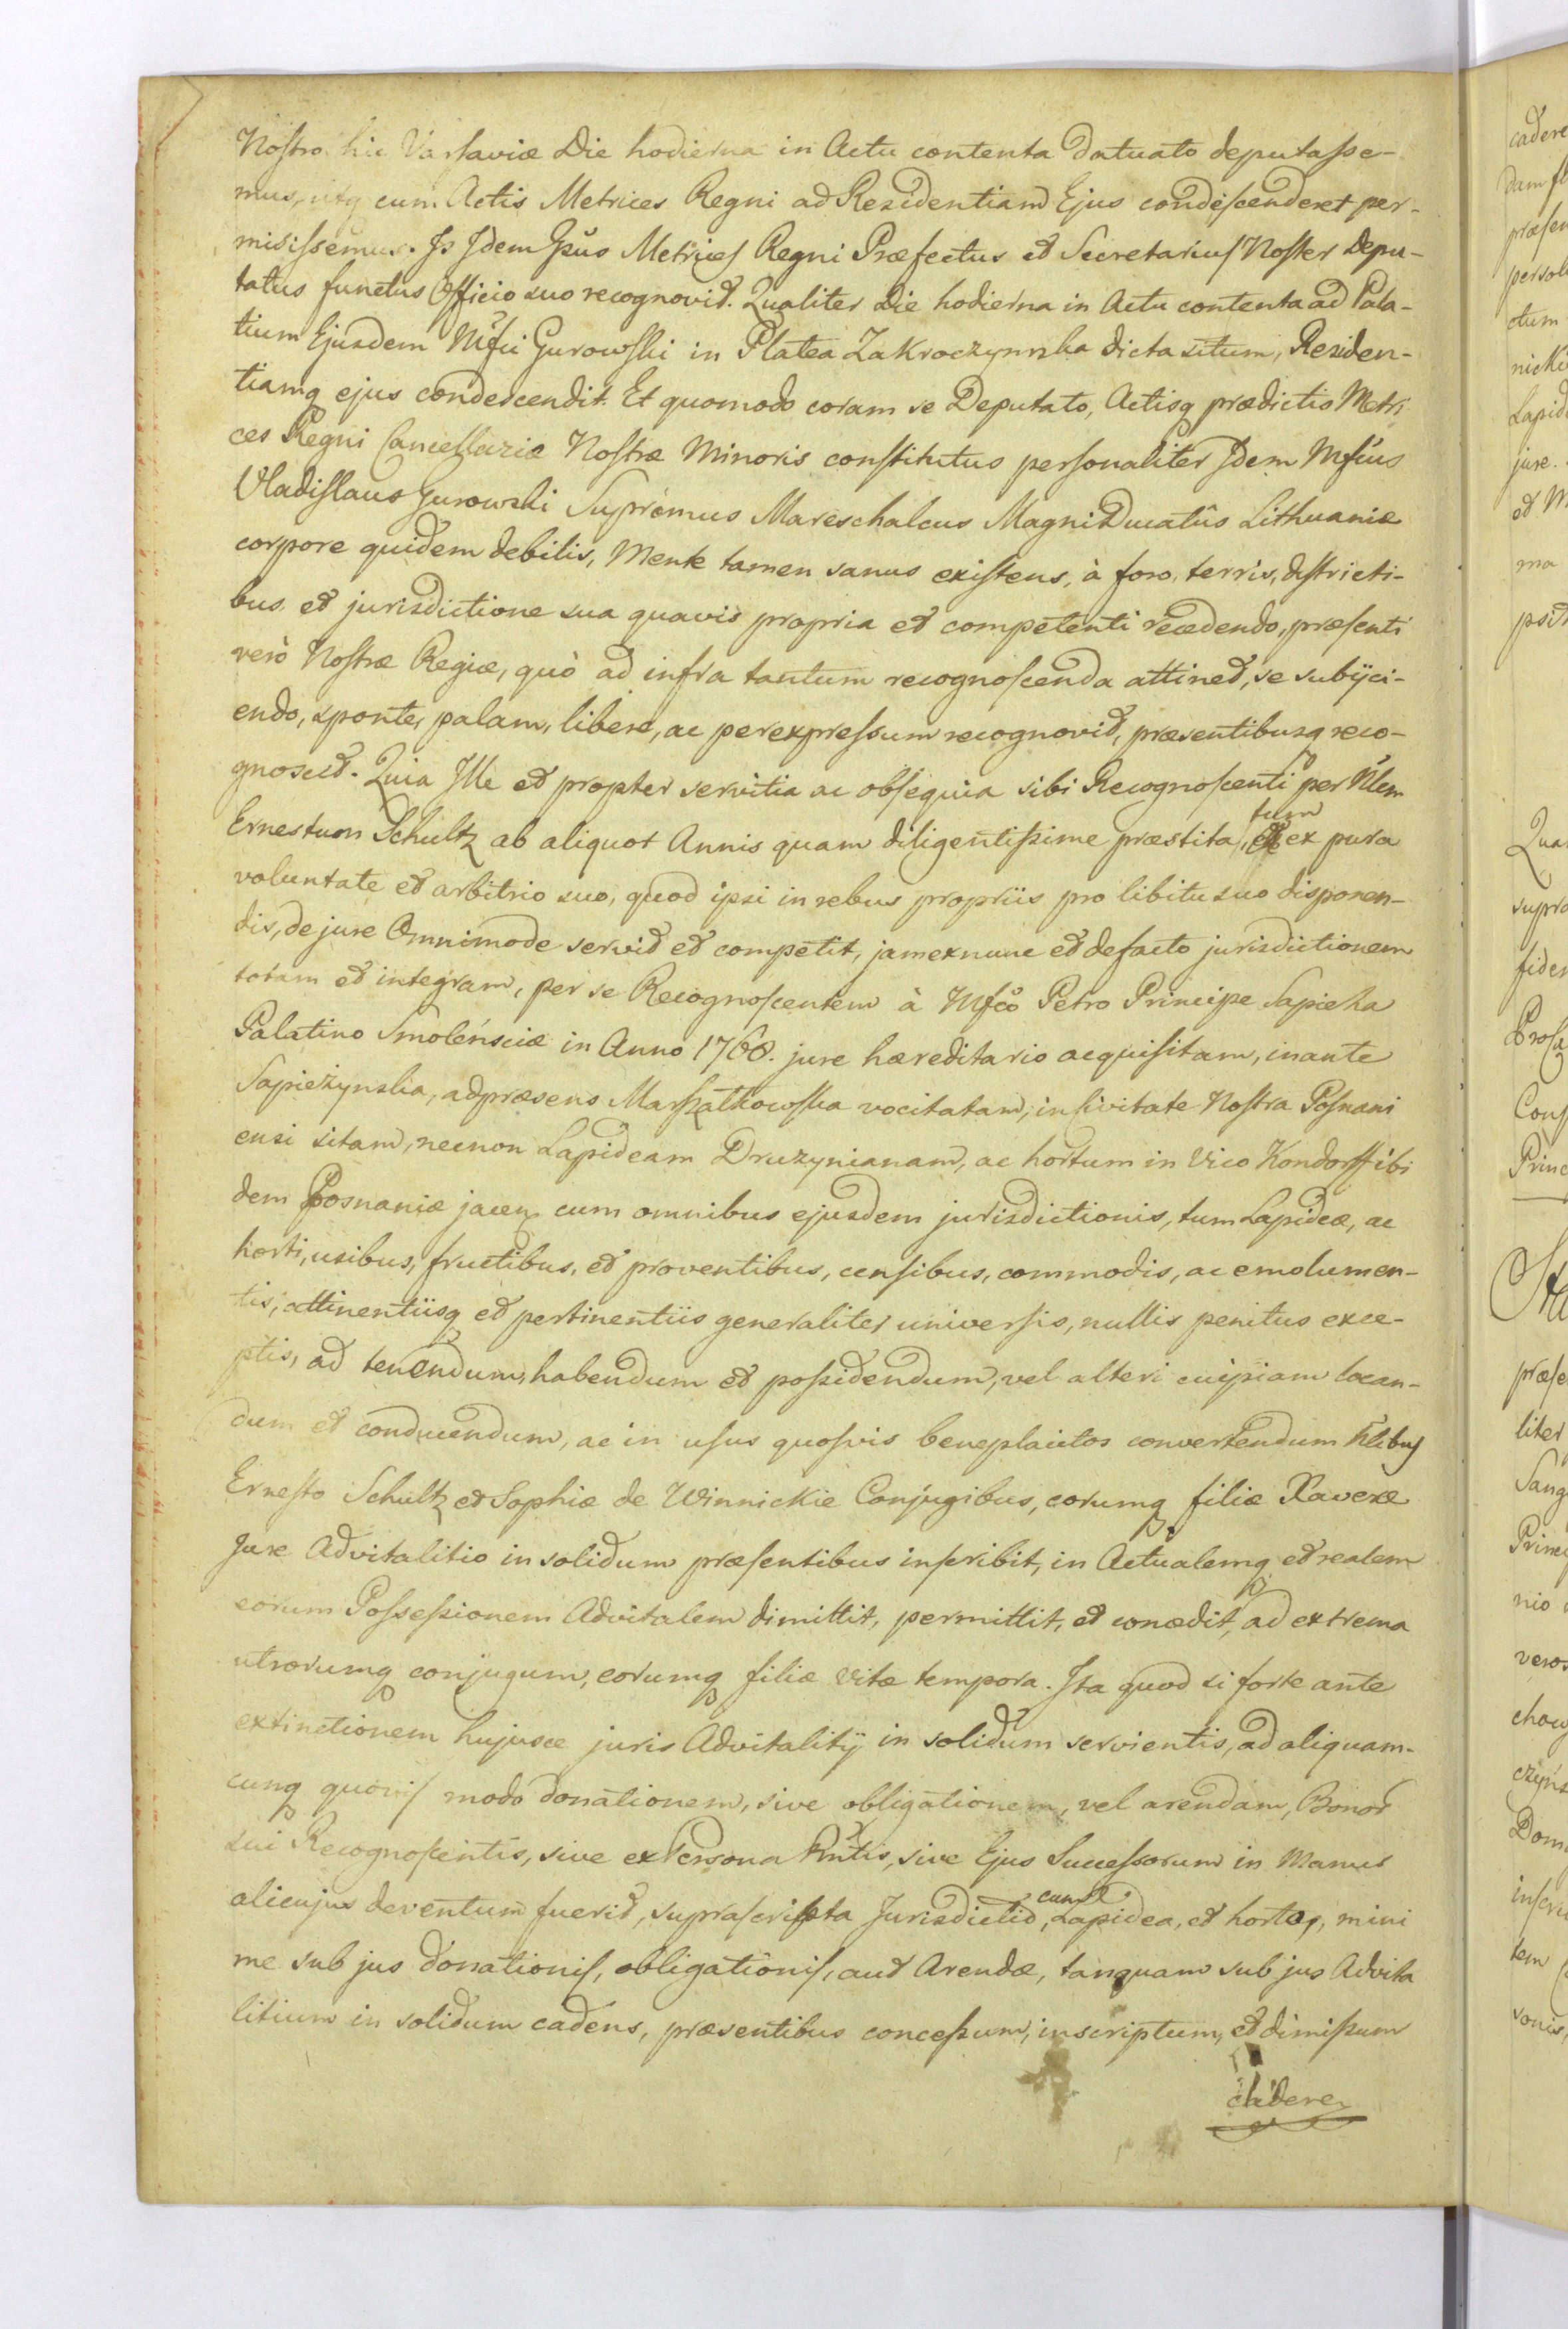 Nostro hic Varsaviæ Die hodierna in Actu contenta Datuato deputasse-
mus, utq cum Actis Metrices Regni ad Residentiam Ejus condescenderet per-
misissemus. Is Idem Gsus Metrices Regni Præfectus et Secretarius Noster Depu-
tatus functus Officio suo recognovit. Qualiter Die hodierna in Actu contenta ad Pala-
tium Ejusdem Mfci Gurowski in Platea Zakroczynska dicta situm, Residen-
tiamq ejus condescendit. Et quomodo coram se Deputato, Actisq prædictis Metri
ces Regni Cancellariæ Nostræ Minoris constitutus personaliter Idem Mfcus
Vladislaus Gurowski Supremus Mareschalcus Magni Ducatûs Lithuaniæ
corpore quidem debilis, Mente tamen sanus existens, à foro, terris, districti-
bus et jurisdictione sua quavis propria et competenti recedendo, præsenti
verò Nostræ Regiæ, quò ad infra tantum recognoscenda attinet, se subijci-
endo, sponte, palam, libere, ac per expressum recognovit, præsentibusq reco-
gnoscit. Quia Ille et propter servitia ac obsequia sibi Recognoscenti per Nlem
Ernestum Schultz ab aliquot Annis quam diligentissime præstita, tum ex pura
voluntate et arbitrio suo, quod ipsi in rebus propriis pro libitu suo disponen-
dis, de jure Omnimode servit et competit, jam ex nunc et de facto jurisdictionem
totam et integram, per se Recognoscentem à Mfco Petro Principe Sapieha
Palatino Smolénsciæ in Anno 1768. jure hæreditario acquisitam, in ante
Sapieżynska, ad præsens Marszałkowska vocitatam, in Civitate Nostra Posnani
ensi sitam, necnon Lapideam Druzynianam, ac hortum in Vico Kondorff ibi
dem Posnaniæ jacen cum omnibus ejusdem jurisdictionis, tum Lapideæ, ac
horti, usibus, fructibus, et proventibus, censibus, commodis, ac emolumen-
tis, attinentiisq et pertinentiis generaliter universis, nullis penitus exce-
ptis, ad tenendum, habendum et possidendum, vel alteri cuipiam locan-
dum et conducendum, ac in usus quosvis beneplacitos convertendum Nlibus
Ernesto Schultz et Sophiæ de Winnickie Conjugibus, eorumq filiæ Xaveræ
Jure Advitalitio in solidum præsentibus inscribit, in Actualemq et realem
eorum Possessionem Advitalem dimittit, permittit, et concedit, ad extrema
utrorumq conjugum, eorumq filiæ vitæ tempora. Ita quod si forte ante
extinctionem hujusce juris Advitalitij in solidum servientis, ad aliquam-
cunq quovis modo donationem, sive obligationem, vel arendam, Bonor
sui Recognoscentis, sive ex Persona Pntis, sive Ejus Successorum in Manus
alicujus deventum fuerit, suprascripta Jurisdictio, cum Lapidea, et horto, mini
me sub jus donationis, obligationis, aut Arendæ, tanquam sub jus Advita
litium in solidum cadens, præsentibus concessum, inscriptum, et dimissum
cadere
cadere
dam
præsen
persol
ctum
nicki
Lapid
jure.
et M
ma
Qua
supra
fiden
Cons
Princ
præse
liter
Sang
Princ
nio
veros
chow
czyńs
Dom
inscri
tem
sonis